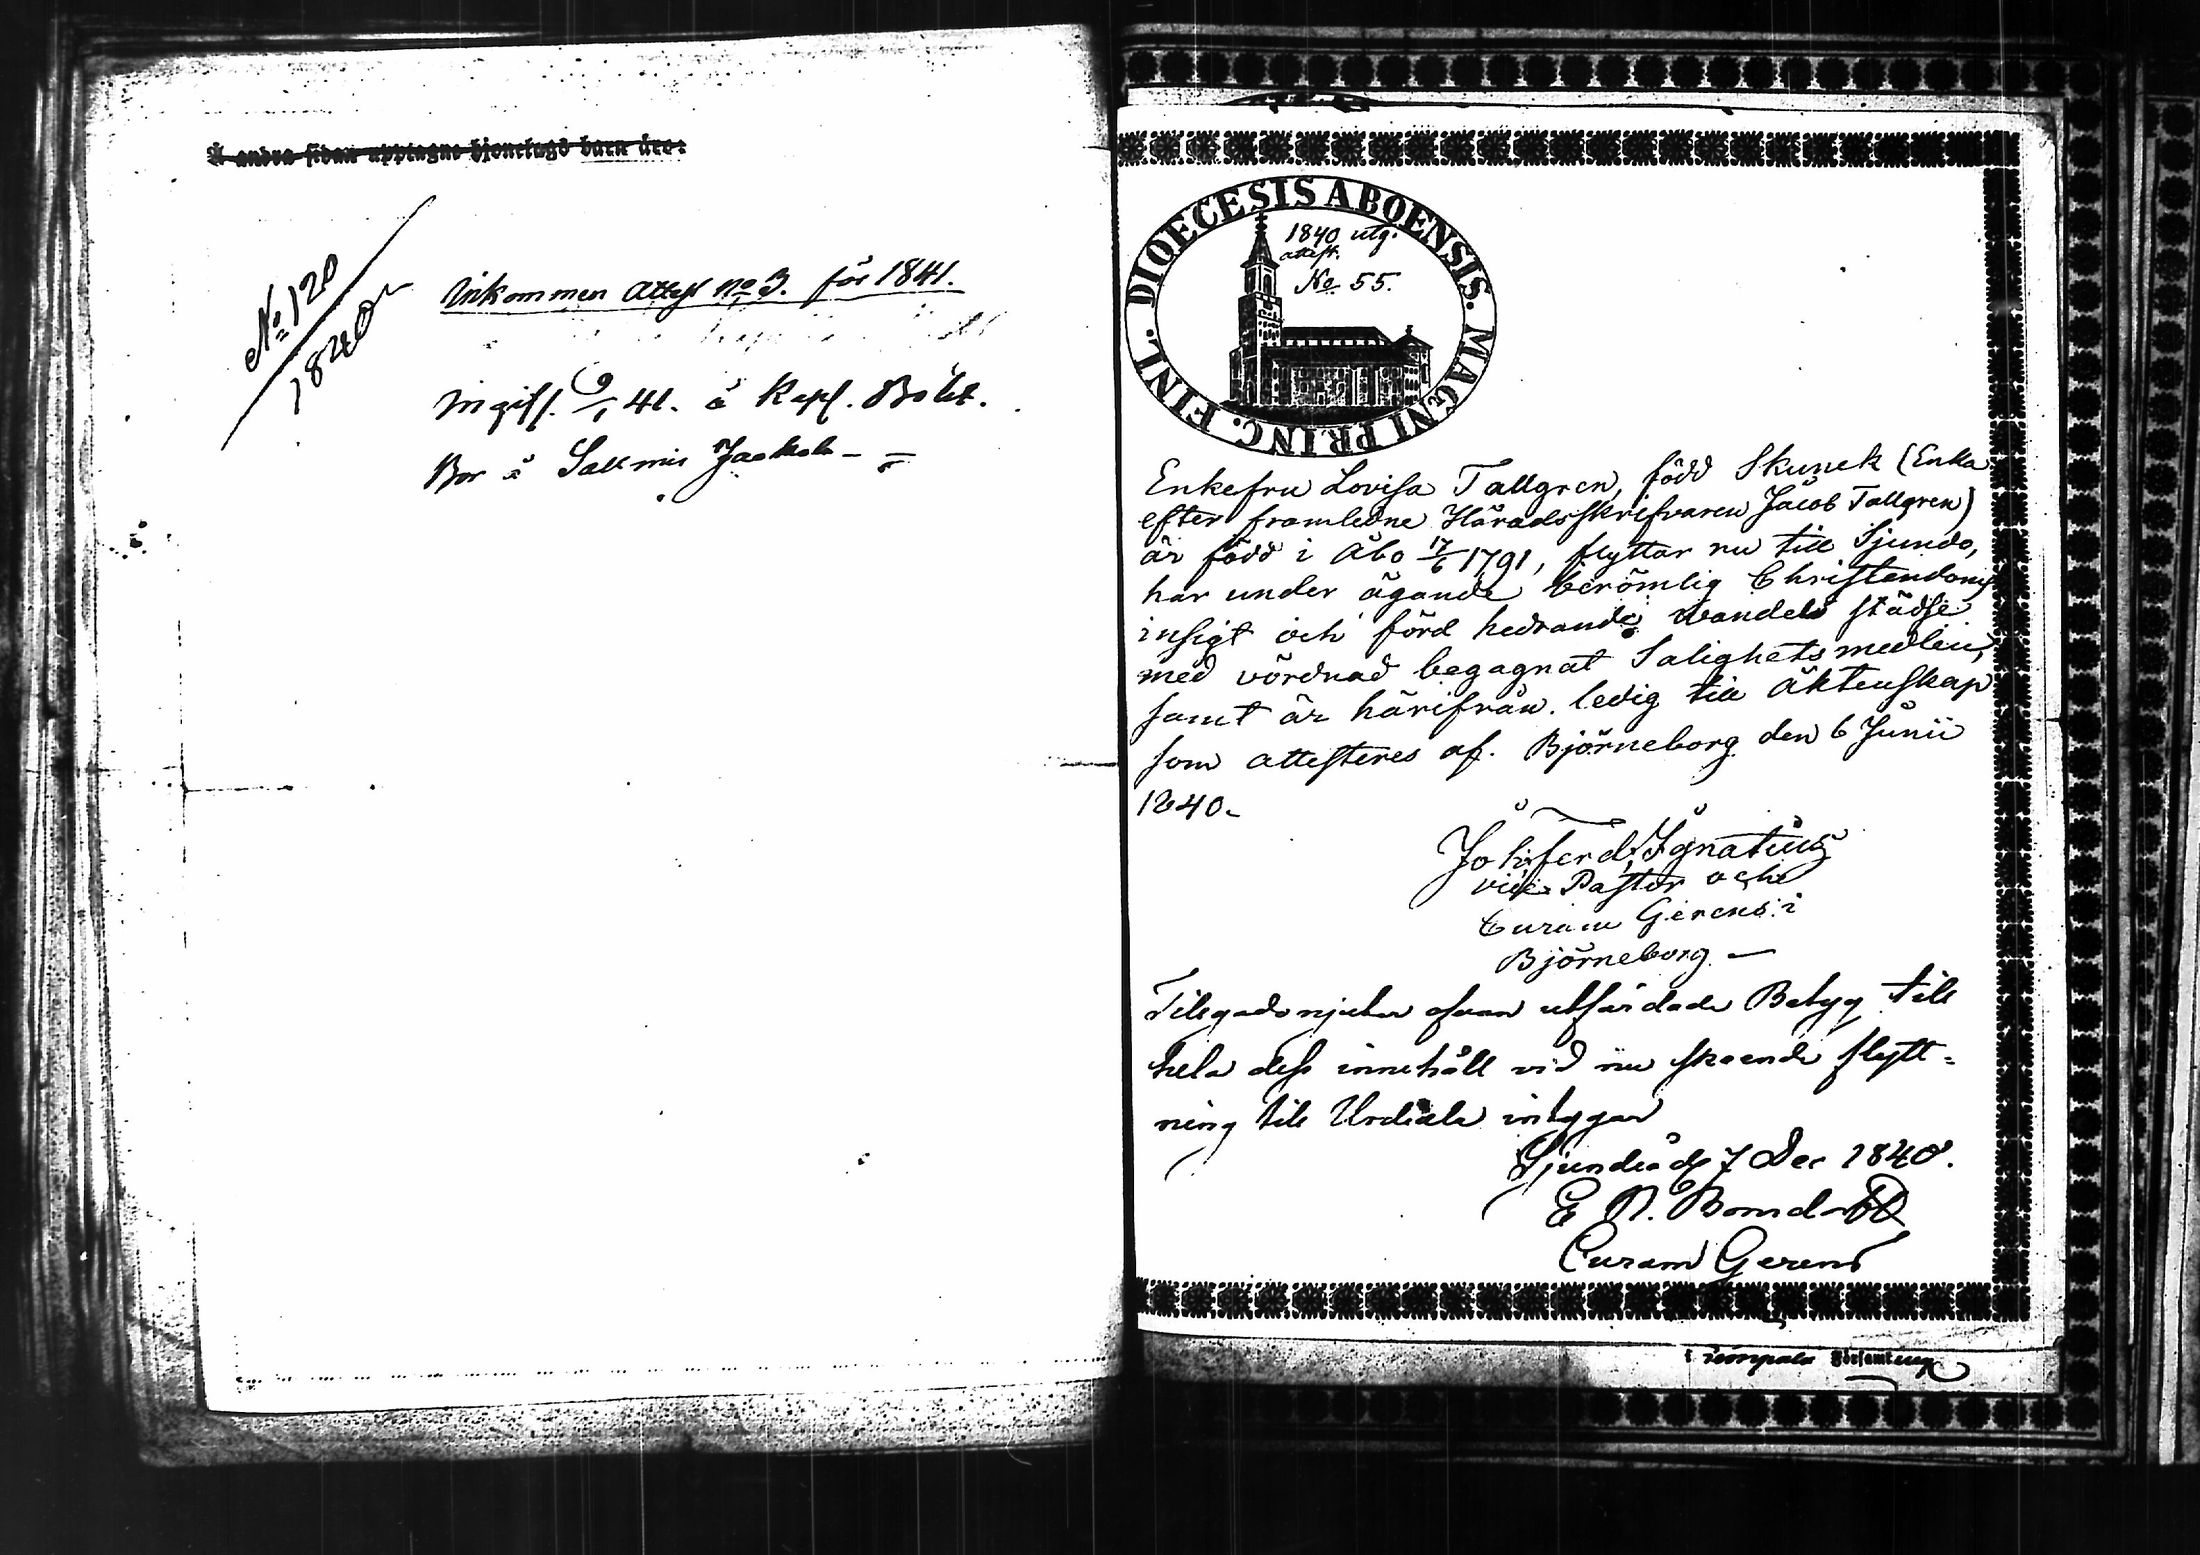 Å andra sidan upptagne hjonelags barn äro:
No 120
1840
Inkommen Attest No 3. för 1841.
Ingift. 9/1 41. å Kapl. Bolet.
Bor å
DIOECESIS ABOENSIS. MAGNI PRINC. FINL.
1840 utg.
attest.
No 55.
Enkefru Lovisa Tallgren, född Skunck (Enka
efter framledne Häradsskrifvaren Jacob Tallgren)
är född i Åbo 17/6 1791, flyttar nu till Sjundo,
har under ägande berömlig Christendoms
insigt och förd hedrande vandel städse
med vördnad begagnat Salighets medlen,
samt är härifrån ledig till äktenskap
som attesteres af. Björneborg den 6 Junii
1840.
Joh. Ferd. Ignatius
vice Pastor och
Curam Gerens i
Björneborg
Tilgodonjuter ofvan utfärdade Betyg till
hela dess innehåll vid nu skeende flytt-
ning till Urdiala intygar
Sjundeå d. 7 Dec 1840.
E N. Bomdorff
Curam Gerens
i Församling